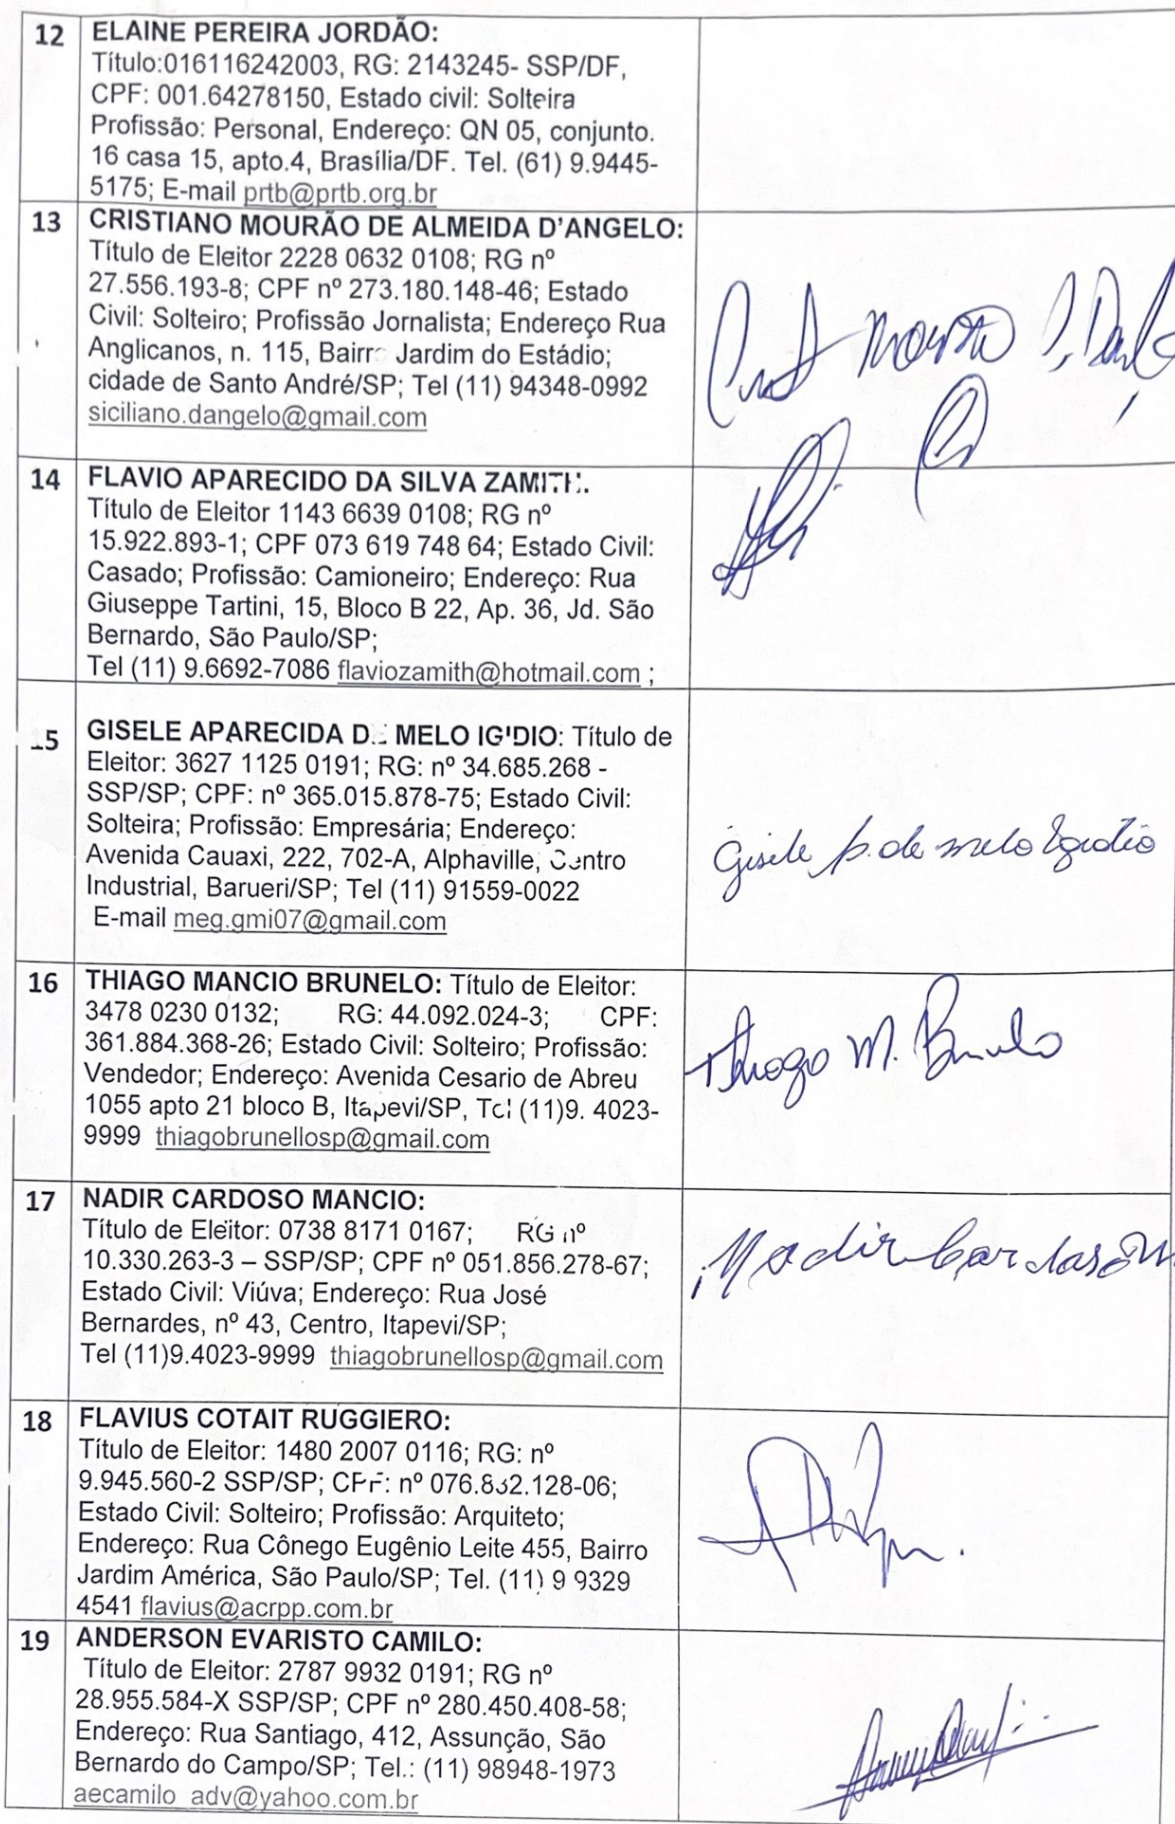 12 ELAINE PEREIRA JORDÃO:
Título:016116242003, RG: 2143245- SSP/DF,
CPF: 001.64278150, Estado civil: Solteira
Profissão: Personal, Endereço: QN 05, conjunto.
16 casa 15, apto.4, Brasília/DF. Tel. (61) 9.9445-
5175; E-mail prtb@prtb.org.br
13 CRISTIANO MOURÃO DE ALMEIDA D'ANGELO:
Título de Eleitor 2228 0632 0108; RG nº
27.556.193-8; CPF nº 273.180.148-46; Estado
Civil: Solteiro; Profissão Jornalista; Endereço Rua
Anglicanos, n. 115, Bairro Jardim do Estádio;
cidade de Santo André/SP; Tel (11) 94348-0992
siciliano.dangelo@gmail.com
14 FLAVIO APARECIDO DA SILVA ZAMITH.
Título de Eleitor 1143 6639 0108; RG nº
15.922.893-1; CPF 073 619 748 64; Estado Civil:
Casado; Profissão: Camioneiro; Endereço: Rua
Giuseppe Tartini, 15, Bloco B 22, Ap. 36, Jd. São
Bernardo, São Paulo/SP;
Tel (11) 9.6692-7086 flaviozamith@hotmail.com ;
15 GISELE APARECIDA DE MELO IGIDIO: Título de
Eleitor: 3627 1125 0191; RG: nº 34.685.268 -
SSP/SP; CPF: nº 365.015.878-75; Estado Civil:
Solteira; Profissão: Empresária; Endereço:
Avenida Cauaxi, 222, 702-A, Alphaville, Centro
Industrial, Barueri/SP; Tel (11) 91559-0022
E-mail meg.gmi07@gmail.com
Gisele A. de Melo Egidio
16 THIAGO MANCIO BRUNELO: Título de Eleitor:
3478 0230 0132; RG: 44.092.024-3; CPF:
361.884.368-26; Estado Civil: Solteiro; Profissão:
Vendedor; Endereço: Avenida Cesario de Abreu
1055 apto 21 bloco B, Itapevi/SP, Tel (11)9. 4023-
9999 thiagobrunellosp@gmail.com
Thiago M. Brunelo
17 NADIR CARDOSO MANCIO:
Título de Eleitor: 0738 8171 0167; RG nº
10.330.263-3 – SSP/SP; CPF nº 051.856.278-67;
Estado Civil: Viúva; Endereço: Rua José
Bernardes, nº 43, Centro, Itapevi/SP;
Tel (11)9.4023-9999 thiagobrunellosp@gmail.com
Nadir Cardoso M
18 FLAVIUS COTAIT RUGGIERO:
Título de Eleitor: 1480 2007 0116; RG: nº
9.945.560-2 SSP/SP; CPF: nº 076.832.128-06;
Estado Civil: Solteiro; Profissão: Arquiteto;
Endereço: Rua Cônego Eugênio Leite 455, Bairro
Jardim América, São Paulo/SP; Tel. (11) 9 9329
4541 flavius@acrpp.com.br
19 ANDERSON EVARISTO CAMILO:
Título de Eleitor: 2787 9932 0191; RG nº
28.955.584-X SSP/SP; CPF nº 280.450.408-58;
Endereço: Rua Santiago, 412, Assunção, São
Bernardo do Campo/SP; Tel.: (11) 98948-1973
aecamilo_adv@yahoo.com.br